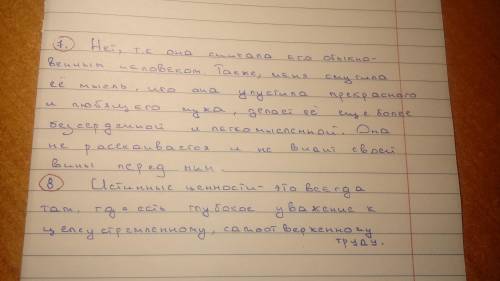 7. Нет, т.к она считала его обыкно-
венным человеком. Также, меня смутила
её мысль, что она упустила прекрасного
и любящего мужа, делает её еще более
бессердечной и легкомысленной. Она
не расскаивается и не видит своей
вины перед ним.
8 Истинные ценности- это всегда
там, где есть глубокое уважение к
целеустремленному, самоотверженному
труду.